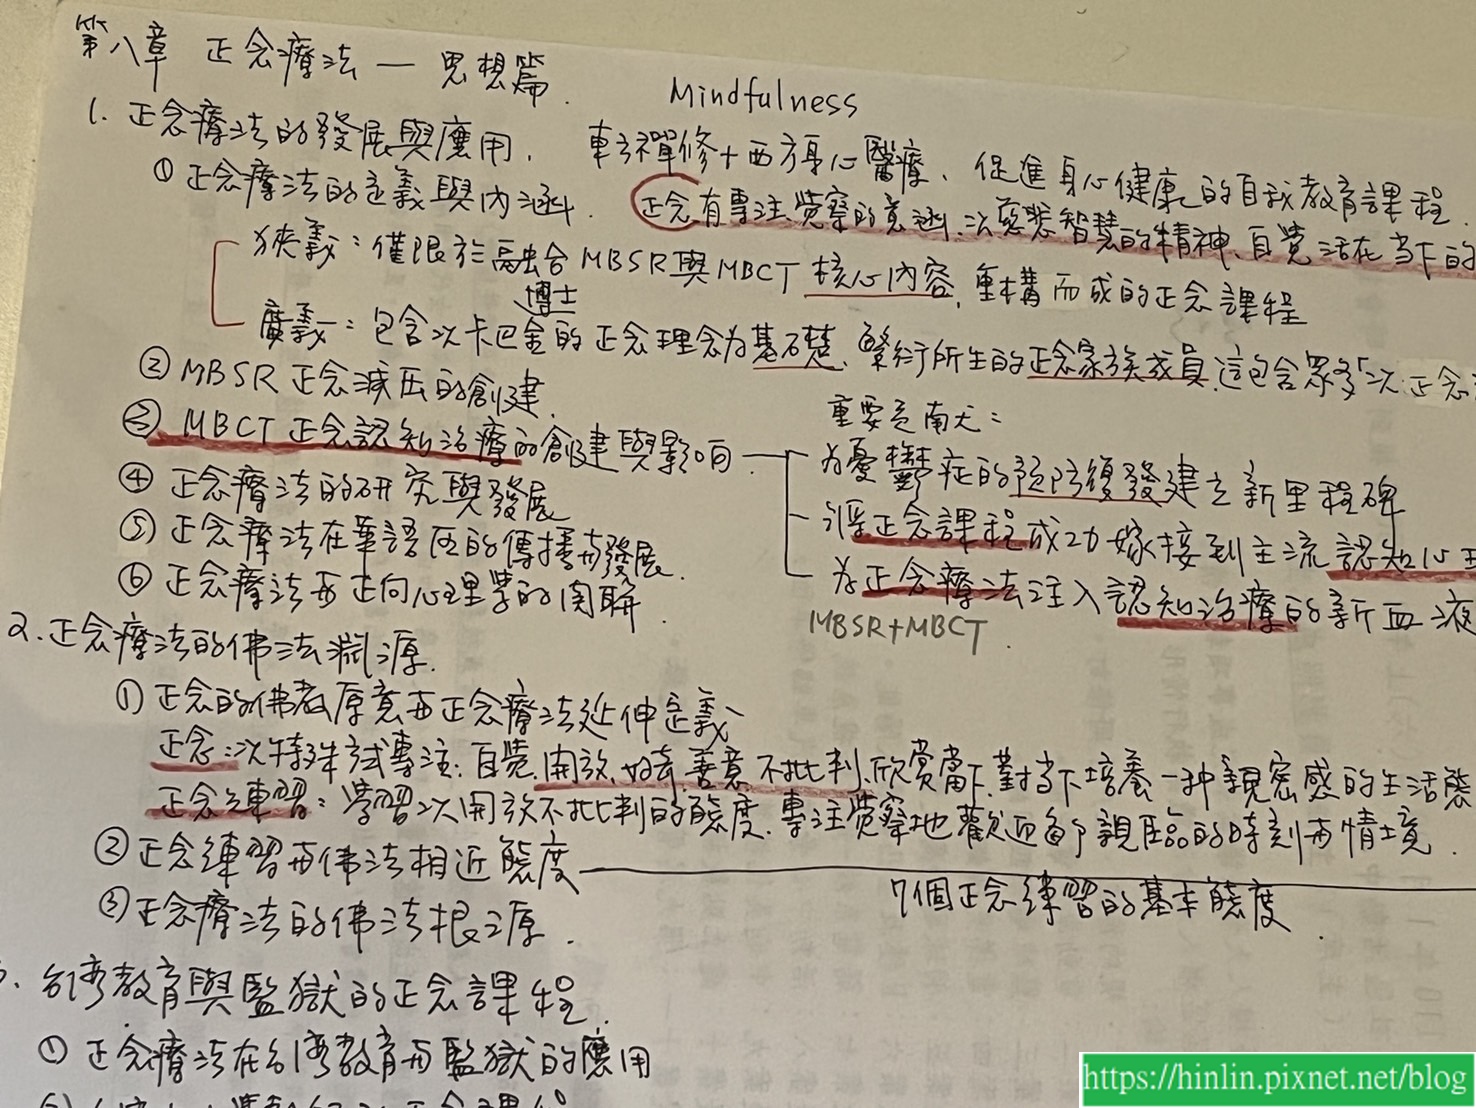 第八章 正念療法 — 思想篇.
Mindfulness
1. 正念療法的發展與應用.
東方禪修+西方身心醫療、促進身心健康的自我教育課程.
① 正念療法的定義與內涵.
正念有專注、覺察的意涵.以慈悲智慧的精神、自覺活在當下的
狹義:僅限於融合MBSR與MBCT核心內容,重構而成的正念課程
博士
廣義:包含以卡巴金的正念理念為基礎、繁衍所生的正念家族成員.這包含眾多以正念
② MBSR正念減压的創建.
③ MBCT正念認知治療的創建與影响.
重要意
為憂鬱症的預防復發建立新里程碑
正念課程成功嫁接到主流認知心
為正念療法注入認知治療的新血液
MBSR+MBCT
④ 正念療法的研究與發展
⑤ 正念療法在華語区的傳播与發展.
⑥ 正念療法与正向心理學的関聯.
2.正念療法的佛法淵源.
① 正念的佛教原意与正念療法延伸定義
正念:以特殊式專注:自覺.開放.好奇善意不批判.欣賞當下.對当下培養一种親密感的生活態
正念練習:學習以開放不批判的態度.專注覺察地歡迎每个親臨的時刻与情境.
② 正念練習与佛法相近態度
7個正念練習的基本態度.
③ 正念療法的佛法根源.
台湾教育與監獄的正念課程.
① 正念療法在台湾教育与監獄的應用
https://hinlin.pixnet.net/blog